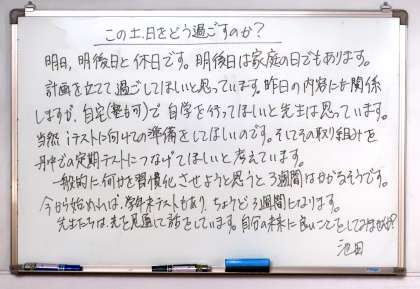 この土、日をどう過ごすのか?
明日、明後日と休日です。明後日は家庭の日でもあります。
計画を立てて過ごしてほしいと思っています。昨日の内容にも関係
しますが、自宅(塾も可)で自学を行ってほいと先生は思っています。
当然iテストに向けての準備をしてほしいのです。そしてその取り組みを
丹中での定期テストにつなげてほしいと考えています。
一般的に何かを習慣化させようと思うと3週間はかかるそうです。
今から始めれば、学年末テストがあり、ちょうど3週間になります。
先生たちは、先を見通して話をしています。自分の未来に良いことをしてみませんか?
池田